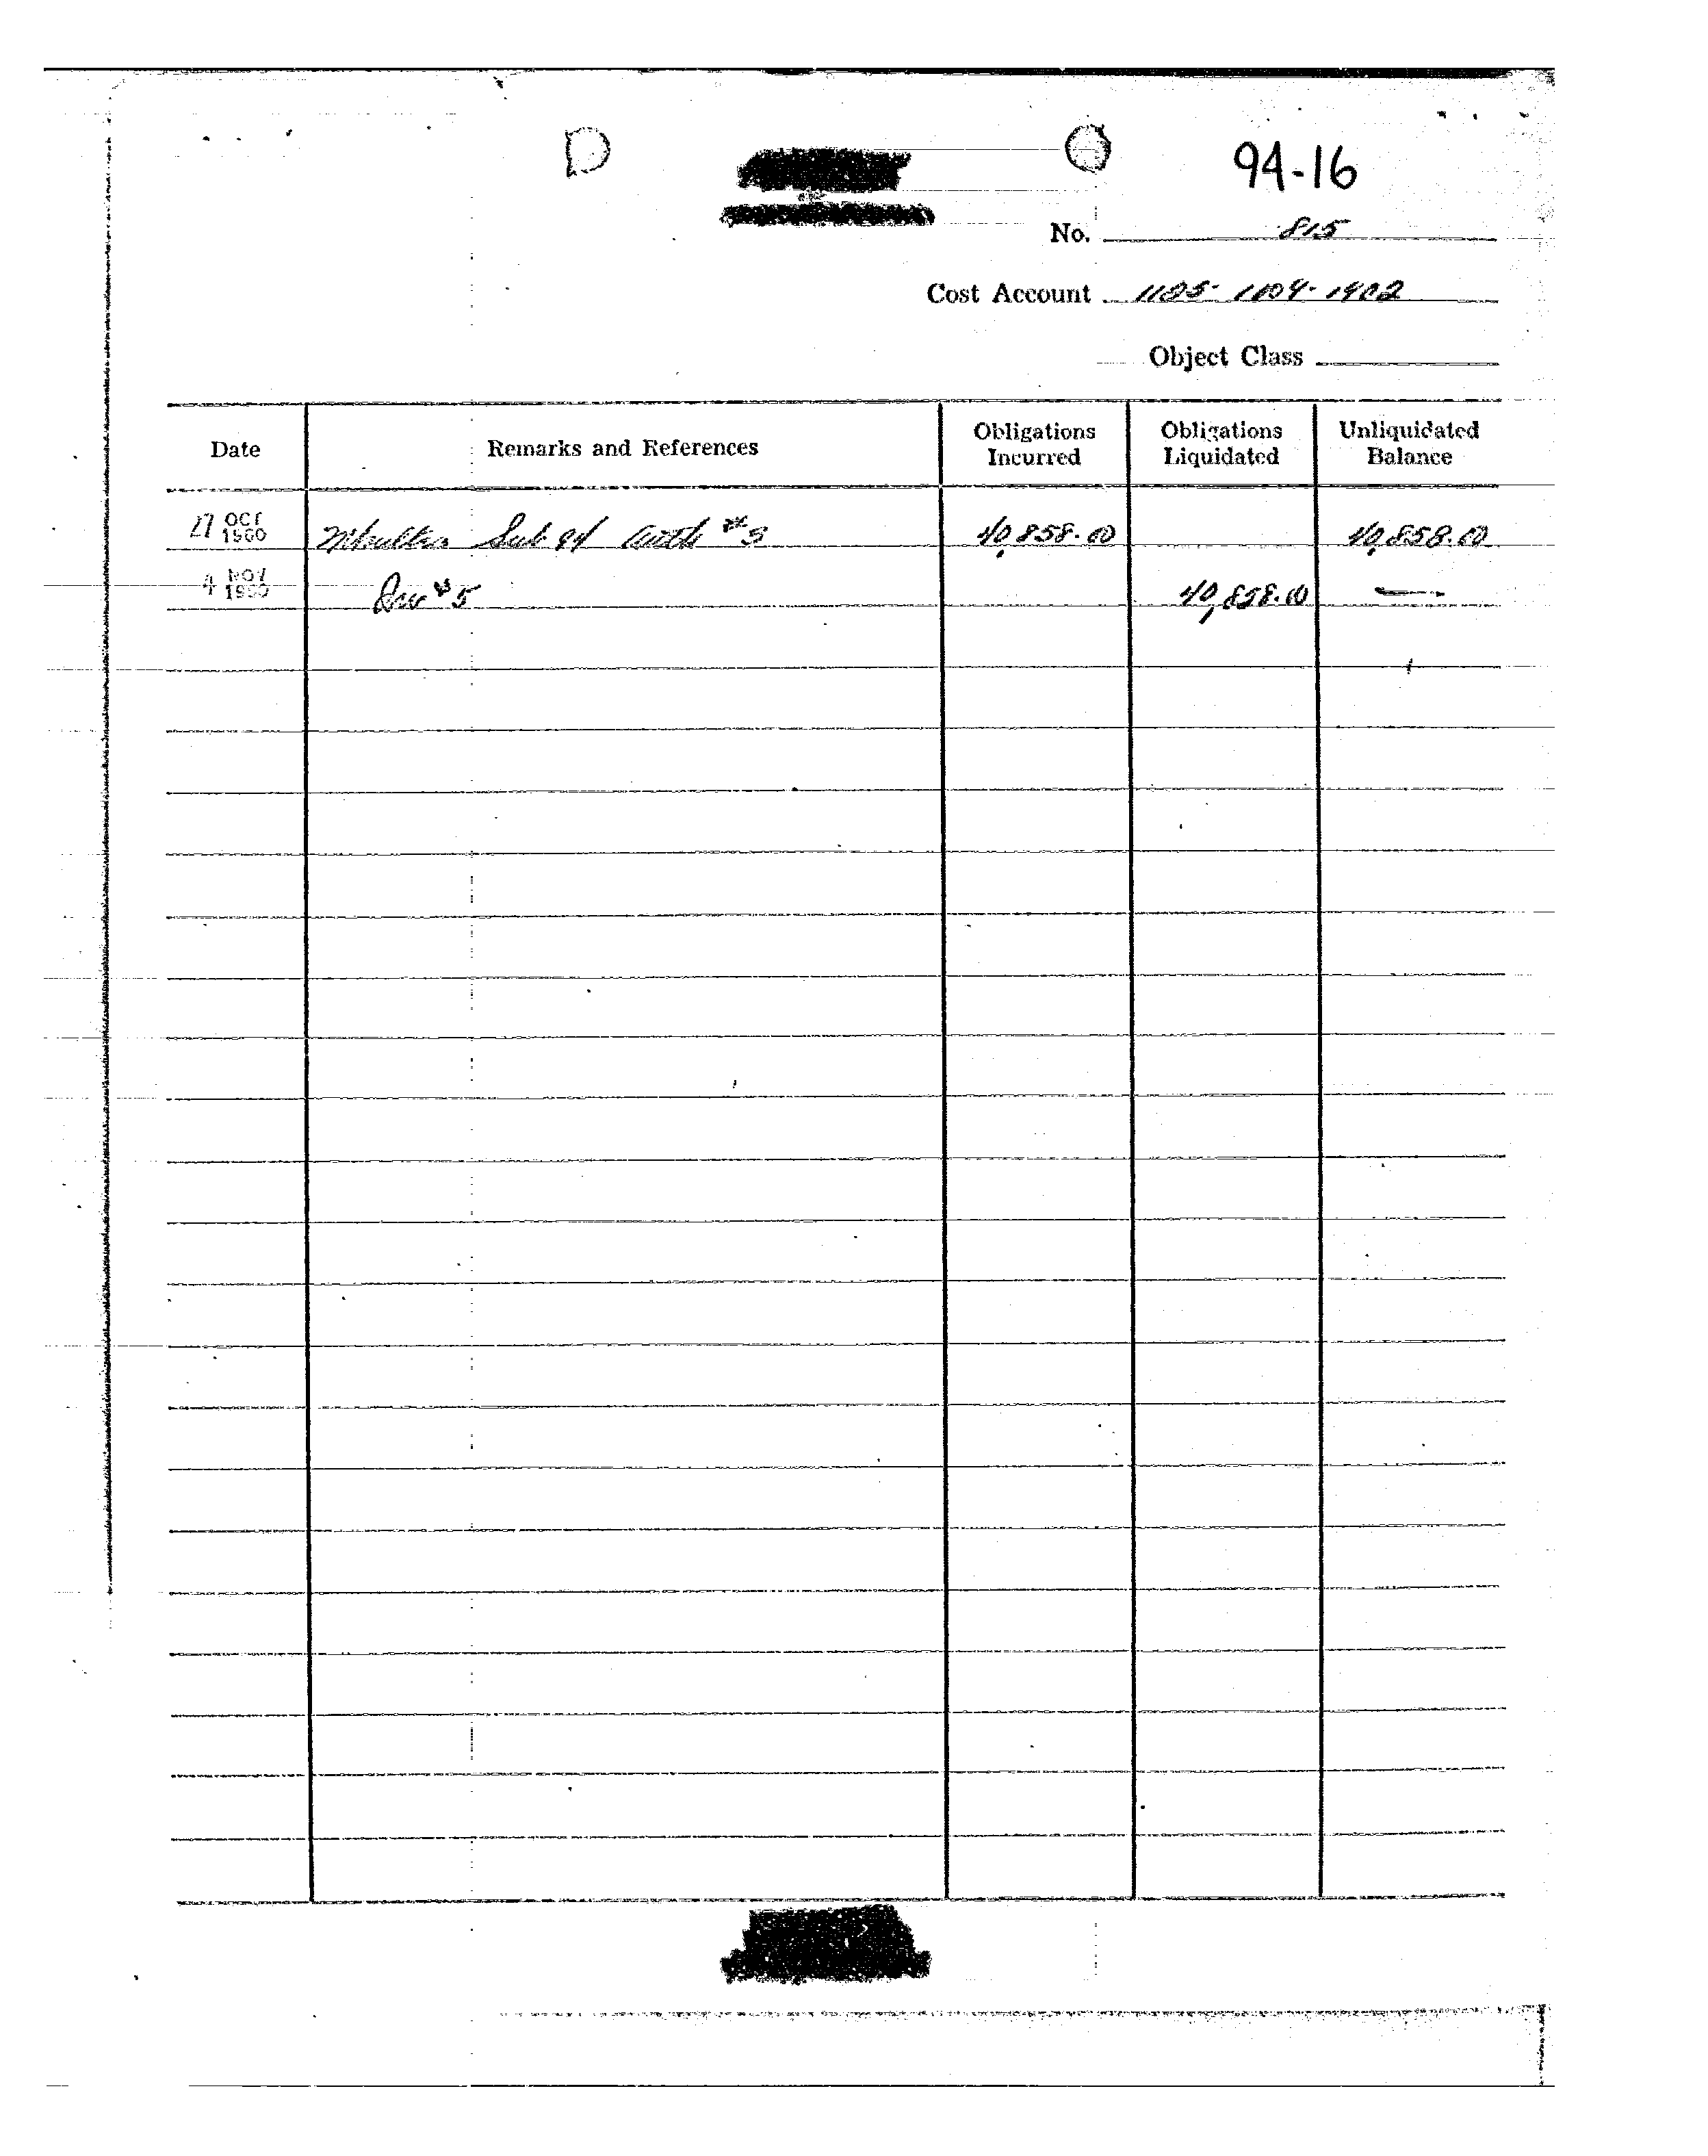 94-16
No. 815
Cost Account 1125-1009-1902
Object Class
Date Remarks and References Obligations Incurred Obligations Liquidated Unliquidated Balance
27 OCT 1960 Mkultra Sub 94 Auth #3 40,858.00 40,858.00
4 NOV 1960 Inv #5 40,858.00 —